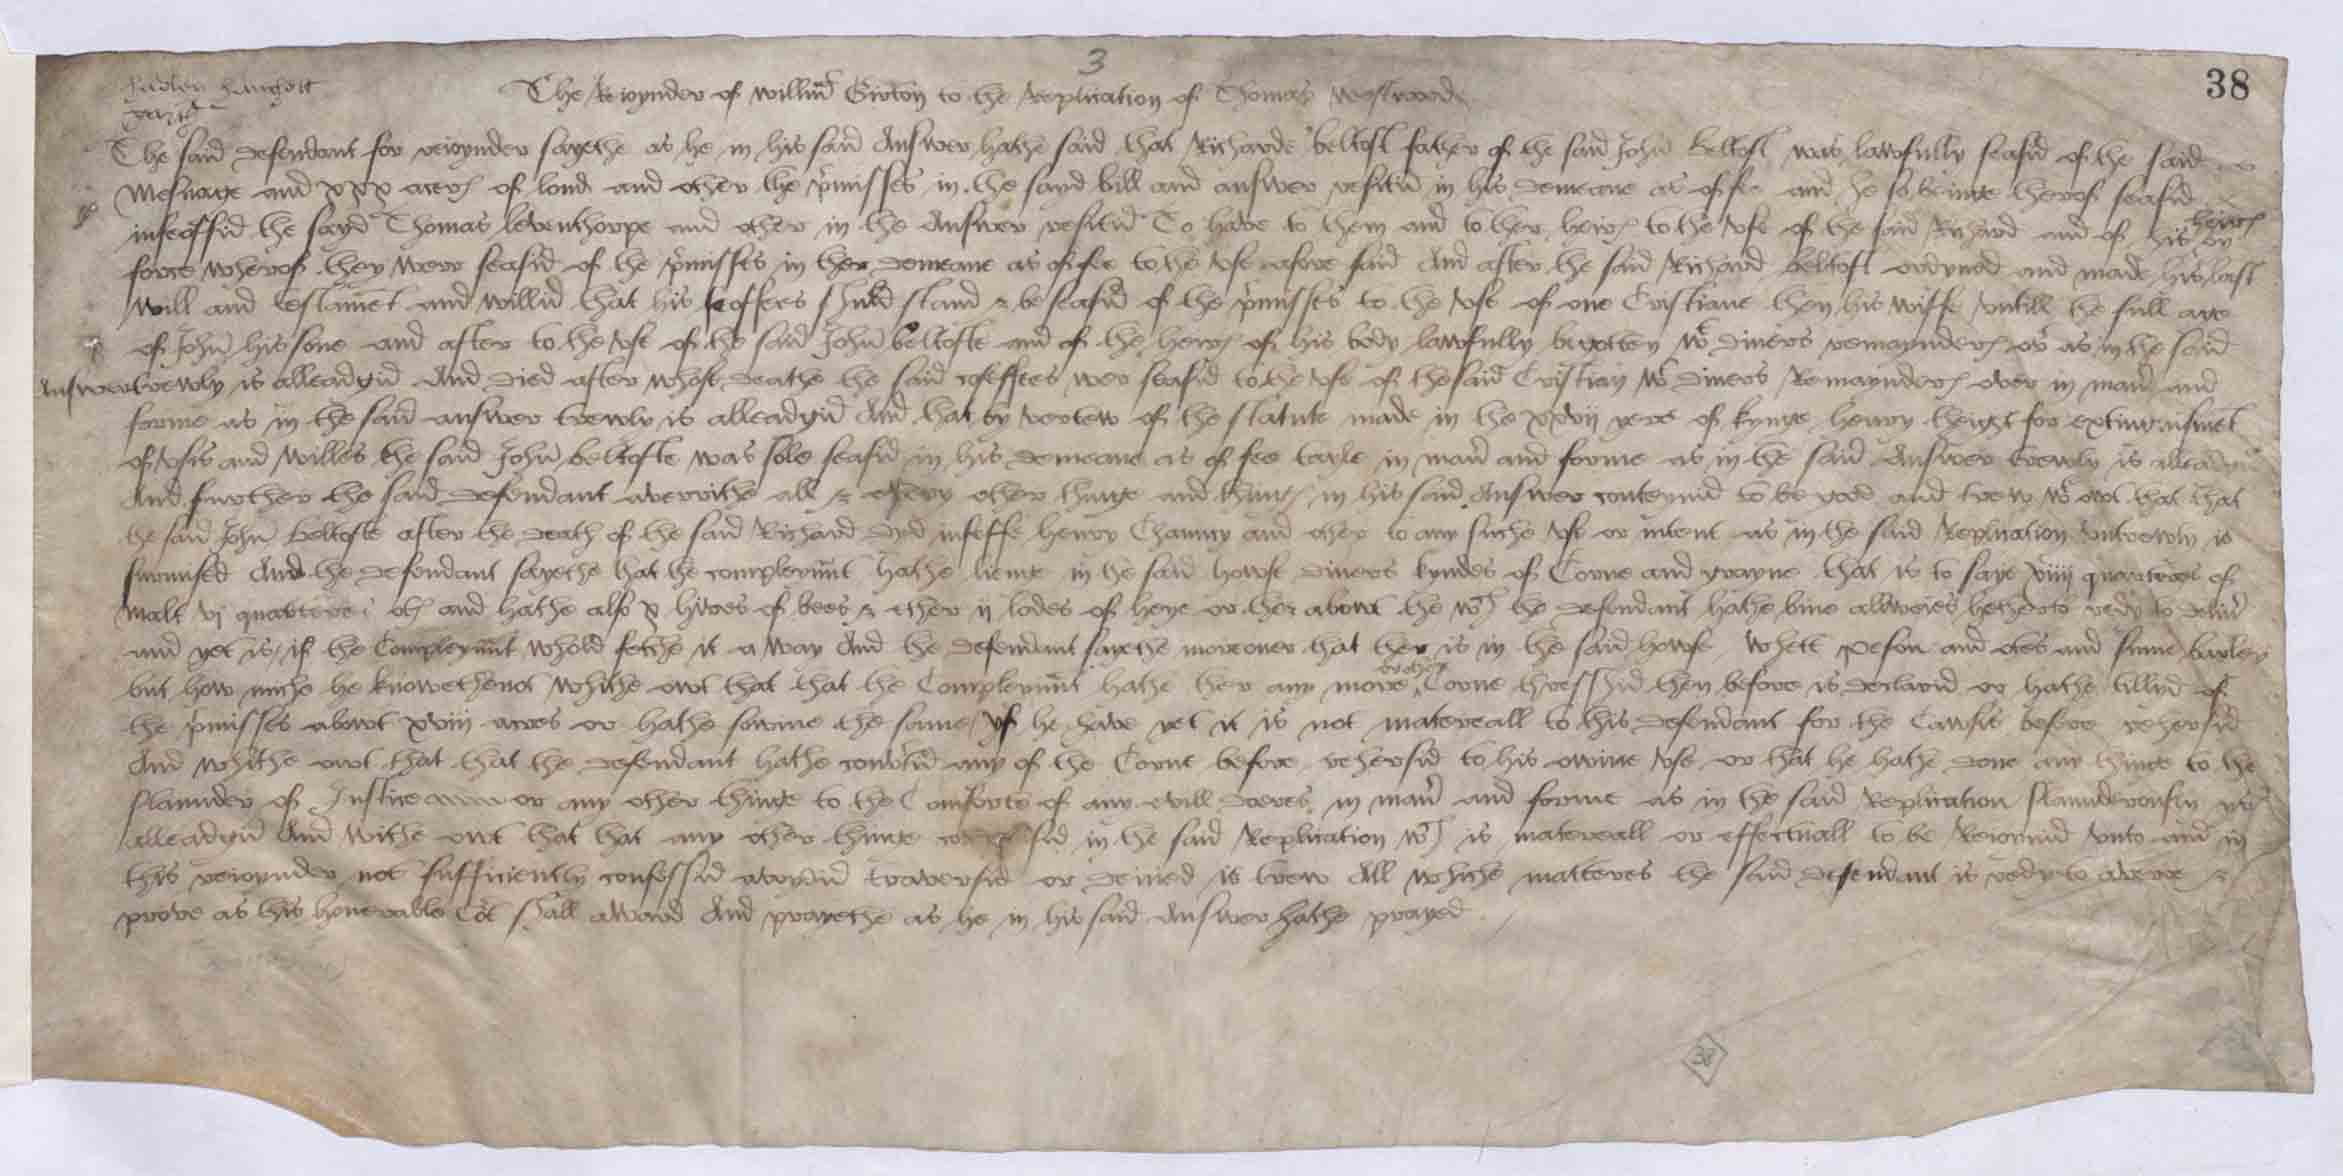 3
38
The Reioynder of Willm Girton to the Replication of Thomas Westwoode
The said defendant for reioynder sayethe as he in his said Answer hathe said that Richarde beltoft father of the said John Beltoft was lawfully seasid of the said
Mesuage and xxx acres of lond and other the pmisses in the sayd bill and answer resitid in his demeane as of fee and he so beinge therof seasid
infeoffid the sayd Thomas leventhorpe and other in the Answer resitid To have to them and to ther heires to the vse of the said Richard and of his heires by
force wherof they were seasid of the pmisses in ther demeane as of fee to the vse afore said And after the said Richard Beltoft ordynyd and made his last
will and testament and willid that his feoffees shuld stand & be seasid of the pmisses to the vse of one Cristiane then his wiffe vntill the full age
of John his sone and after to the vse of the said John beltofte and of the heires of his body lawfully begotten wt divers remaynderes ov as in the said
Answer trewly is alleadgid And died after whose deathe the said cofeffees wer seasid to the vse of the said Cristian wt divers Remaynderes over in man and
forme as in the said answer trewly is alleadgid And that by vertew of the statute made in the xxvij yere of kynge henry theight for extinguisment
of vsis and willes the said John beltofte was sole seasid in his demeane as of fee tayle in man and forme as in the said Answer trewly is alleadgid
And further the said defendant averrithe all & every other thinge and thinges in his said Answer conteynid to be good and trew wt owt that that
the said John beltofte after the death of the said Richard dyd infeffe henry Chauncy and other to any suche vse or intent as in the said Replication vntrewly is
surmised And the defendant sayethe that the compleynnt hathe lieinge in the said howse divers kyndes of Corne and grayne that is to saye xiiij quarteres of
Malt vj quarteres otes and hathe also x hives of bees & ether ij lodes of heye or ther abowt the wch the defendant hathe bine allweies hetherto redy to delivr
and yet is if the Compleynnt whold fetche it a way And the defendant sayethe moreover that ther is in the said howse whett peson and otes and sume barley
but how miche he knowethe not Whithe owt that that the Compleynnt hathe ther any more other Corne thresshid then before is declarid or hathe tillyd of
the pmisses abowt xviij acres or hathe sowne the same yf he have yet it is not matereall to this defendant for the Cawsis before rehersid
And whithe owt that that the defendant hathe convtid any of the Corne before rehersid to his owine vse or that he hathe done any thinge to the
slaunder of Justice or any other thinge to the Comforte of any evill doeres in man and forme as in the said Replication slaunderousely is
alleadgid And withe owt that that any other thinge in the said Replication wch is matereall or effectuall to be Reioynid vnto and in
this reioynder not sufficiently confessid avoydid traversid or denied is trew All whiche matteres the said defendant is redy to averre &
prove as this honerable Cort shall award And prayethe as he in his said Answer hathe prayed
38